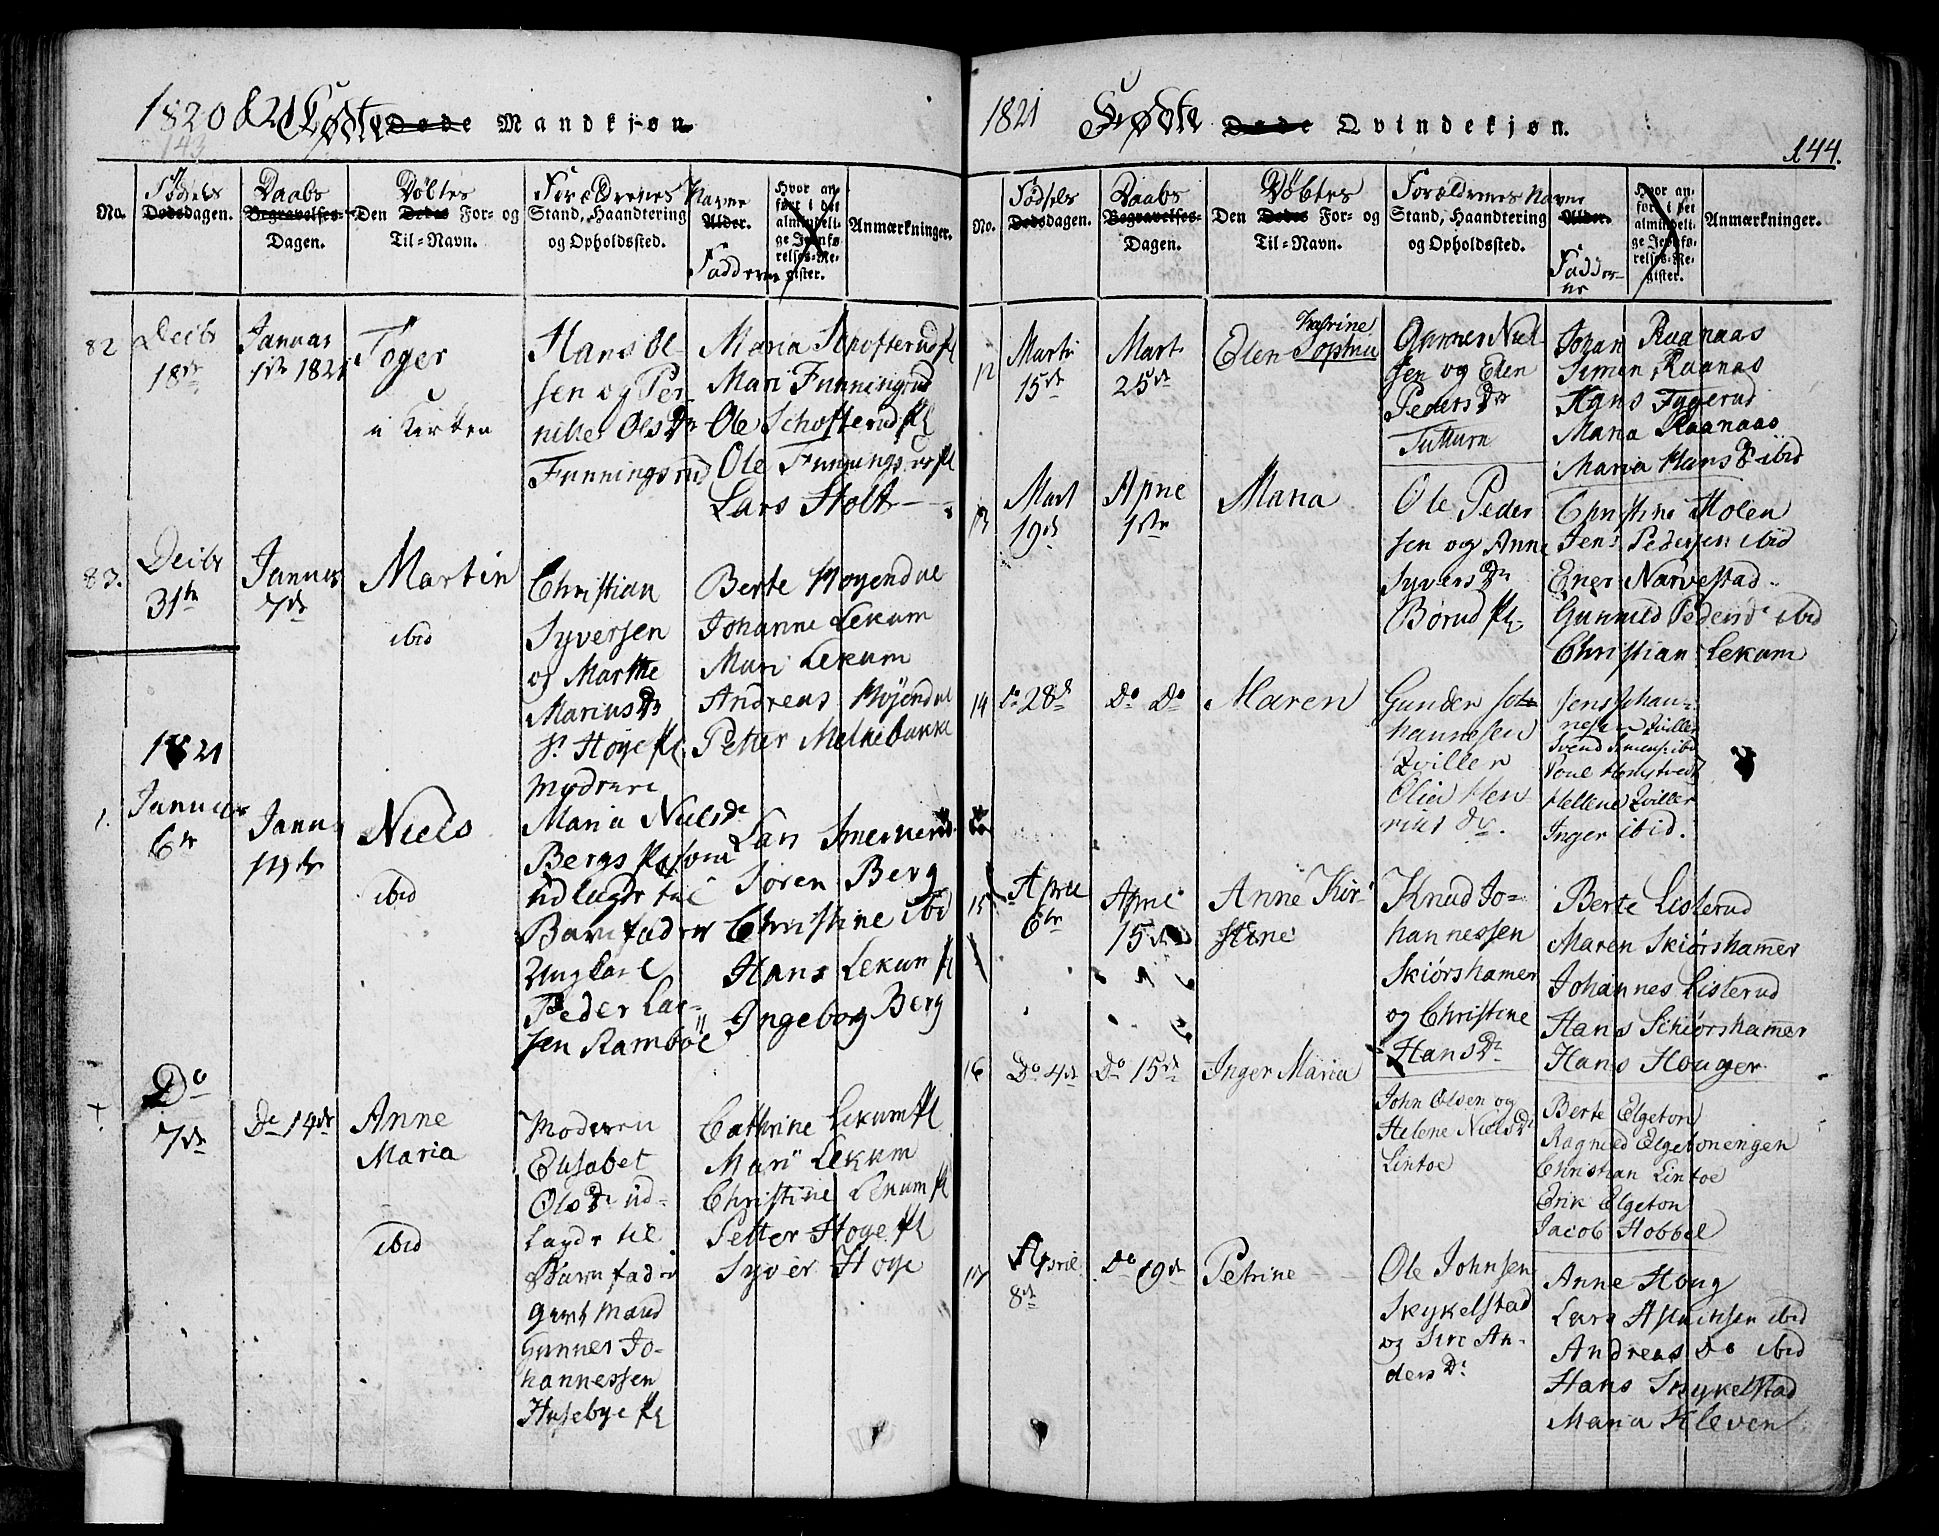 1820 & 21 Fødte Døde Mandkjøn.
143
No.
Fødsels
Dødsdagen.
Daabs
Begravelses-
Dagen.
Døbtes
Den Dødes For- og
Til-Navn.
Forældrenes Navne
Stand, Haandtering
og Opholdssted.
Alder.
Faddere
Hvor an-
ført i det
almindeli-
ge Jevnfø-
relses-Re-
gister.
Anmærkninger.
82
Decbr
18de
Januar
1ste 1821
Toger
i Kirken
Hans Ol-
sen og Per-
nille Olsdr
Funningsrud
Maria Schofterud pl
Mari Funningrud
Ole Schofterud pl
Ole Funningsrud pl
Lars Holt
83.
Decbr
31te
Januar
7de
Martin
ibid
Christian
Syversen
og Marthe
Mariusdr
Høye pl
Berte Høyendal
Johanne Lekum
Mari Lekum
Andreas Høyendal
Petter Melkebakke
1821
1.
Januar
6te
Janu
14de
Niels
ibid
Moderen
Maria Nielsdr
Bergs pl som
udlagde til
Barnefader
Ungkarl
Peder Lar-
sen Rambøl
Lars
Søren Berg
Christine ibid
Hans Lekum pl
Ingeborg Berg
Do
7de
Do 14de
Anne
Maria
ibid
Moderen
Elisabet
Olsdr ud-
lagde til
Barnefader
givt Mand
Gunner Jo-
hannessen
Husebye pl
Cathrine Lekum pl
Mari Lekum
Christine Lekum pl
Petter Høye pl
Syver Høye
1821 Fødte Døde Qvindekjøn.
144.
No.
Fødsels
Dødsdagen.
Daabs
Begravelses-
Dagen.
Døbtes
Den Dødes For- og
Til-Navn.
Forældrenes Navne
Stand, Haandtering
og Opholdssted.
Alder.
Fadder-
ne
Hvor an-
ført i det
almindeli-
ge Jevnfø-
relses-Re-
gister.
Anmærkninger.
12
Marti
15de
Mart
25de
Elen Sophia
Gunner Niel-
sen og Elen
Pedersdr
Johan Raanaas
Simen Raanas
Hans Fygerud
Maria Raanaas
Maria Hansd ibid
13
Mart
19de
Aprie
1ste
Maria
Ole Peder
sen og Anne
Syversdr
Børud pl
Christine Holen
Jens Pedersen ibid
Ener Narvestad
Gunnild Pedersd ibid
Christian Lekum
14
Do 28de
Do Do
Maren
Gunder Jo-
hannesen
Zviller
Olia Hen
dr.
Jens Johan-
nesen Zviller
Svend Simens ibid
Poul
Hellene Zviller
Inger ibid.
15
April
6te
April
15de
Anne Kir-
stine
Knud Jo-
hannessen
Skiørshamer
og Christine
Hansdr
Berte Listerud
Maren Skiørshamer
Johannes Listerud
Hans Schiørshamer
Hans Houger
16
Do 4de
Do 15de
Inger Maria
John Olsen og
Helene Nielsdr
Lintoe
Berte Elgeton
Ragnild Elgetonengen
Christian Lintoe
Erik Elgeton
Jacob Hobbel
17
April
8de
Do 19de
Petrine
Ole Johnsen
Skykelstad
og Siri An-
dersdr
Anne Houg
Lars ibid
Andreas Do ibid
Hans Skykelstad
Maria Kleven